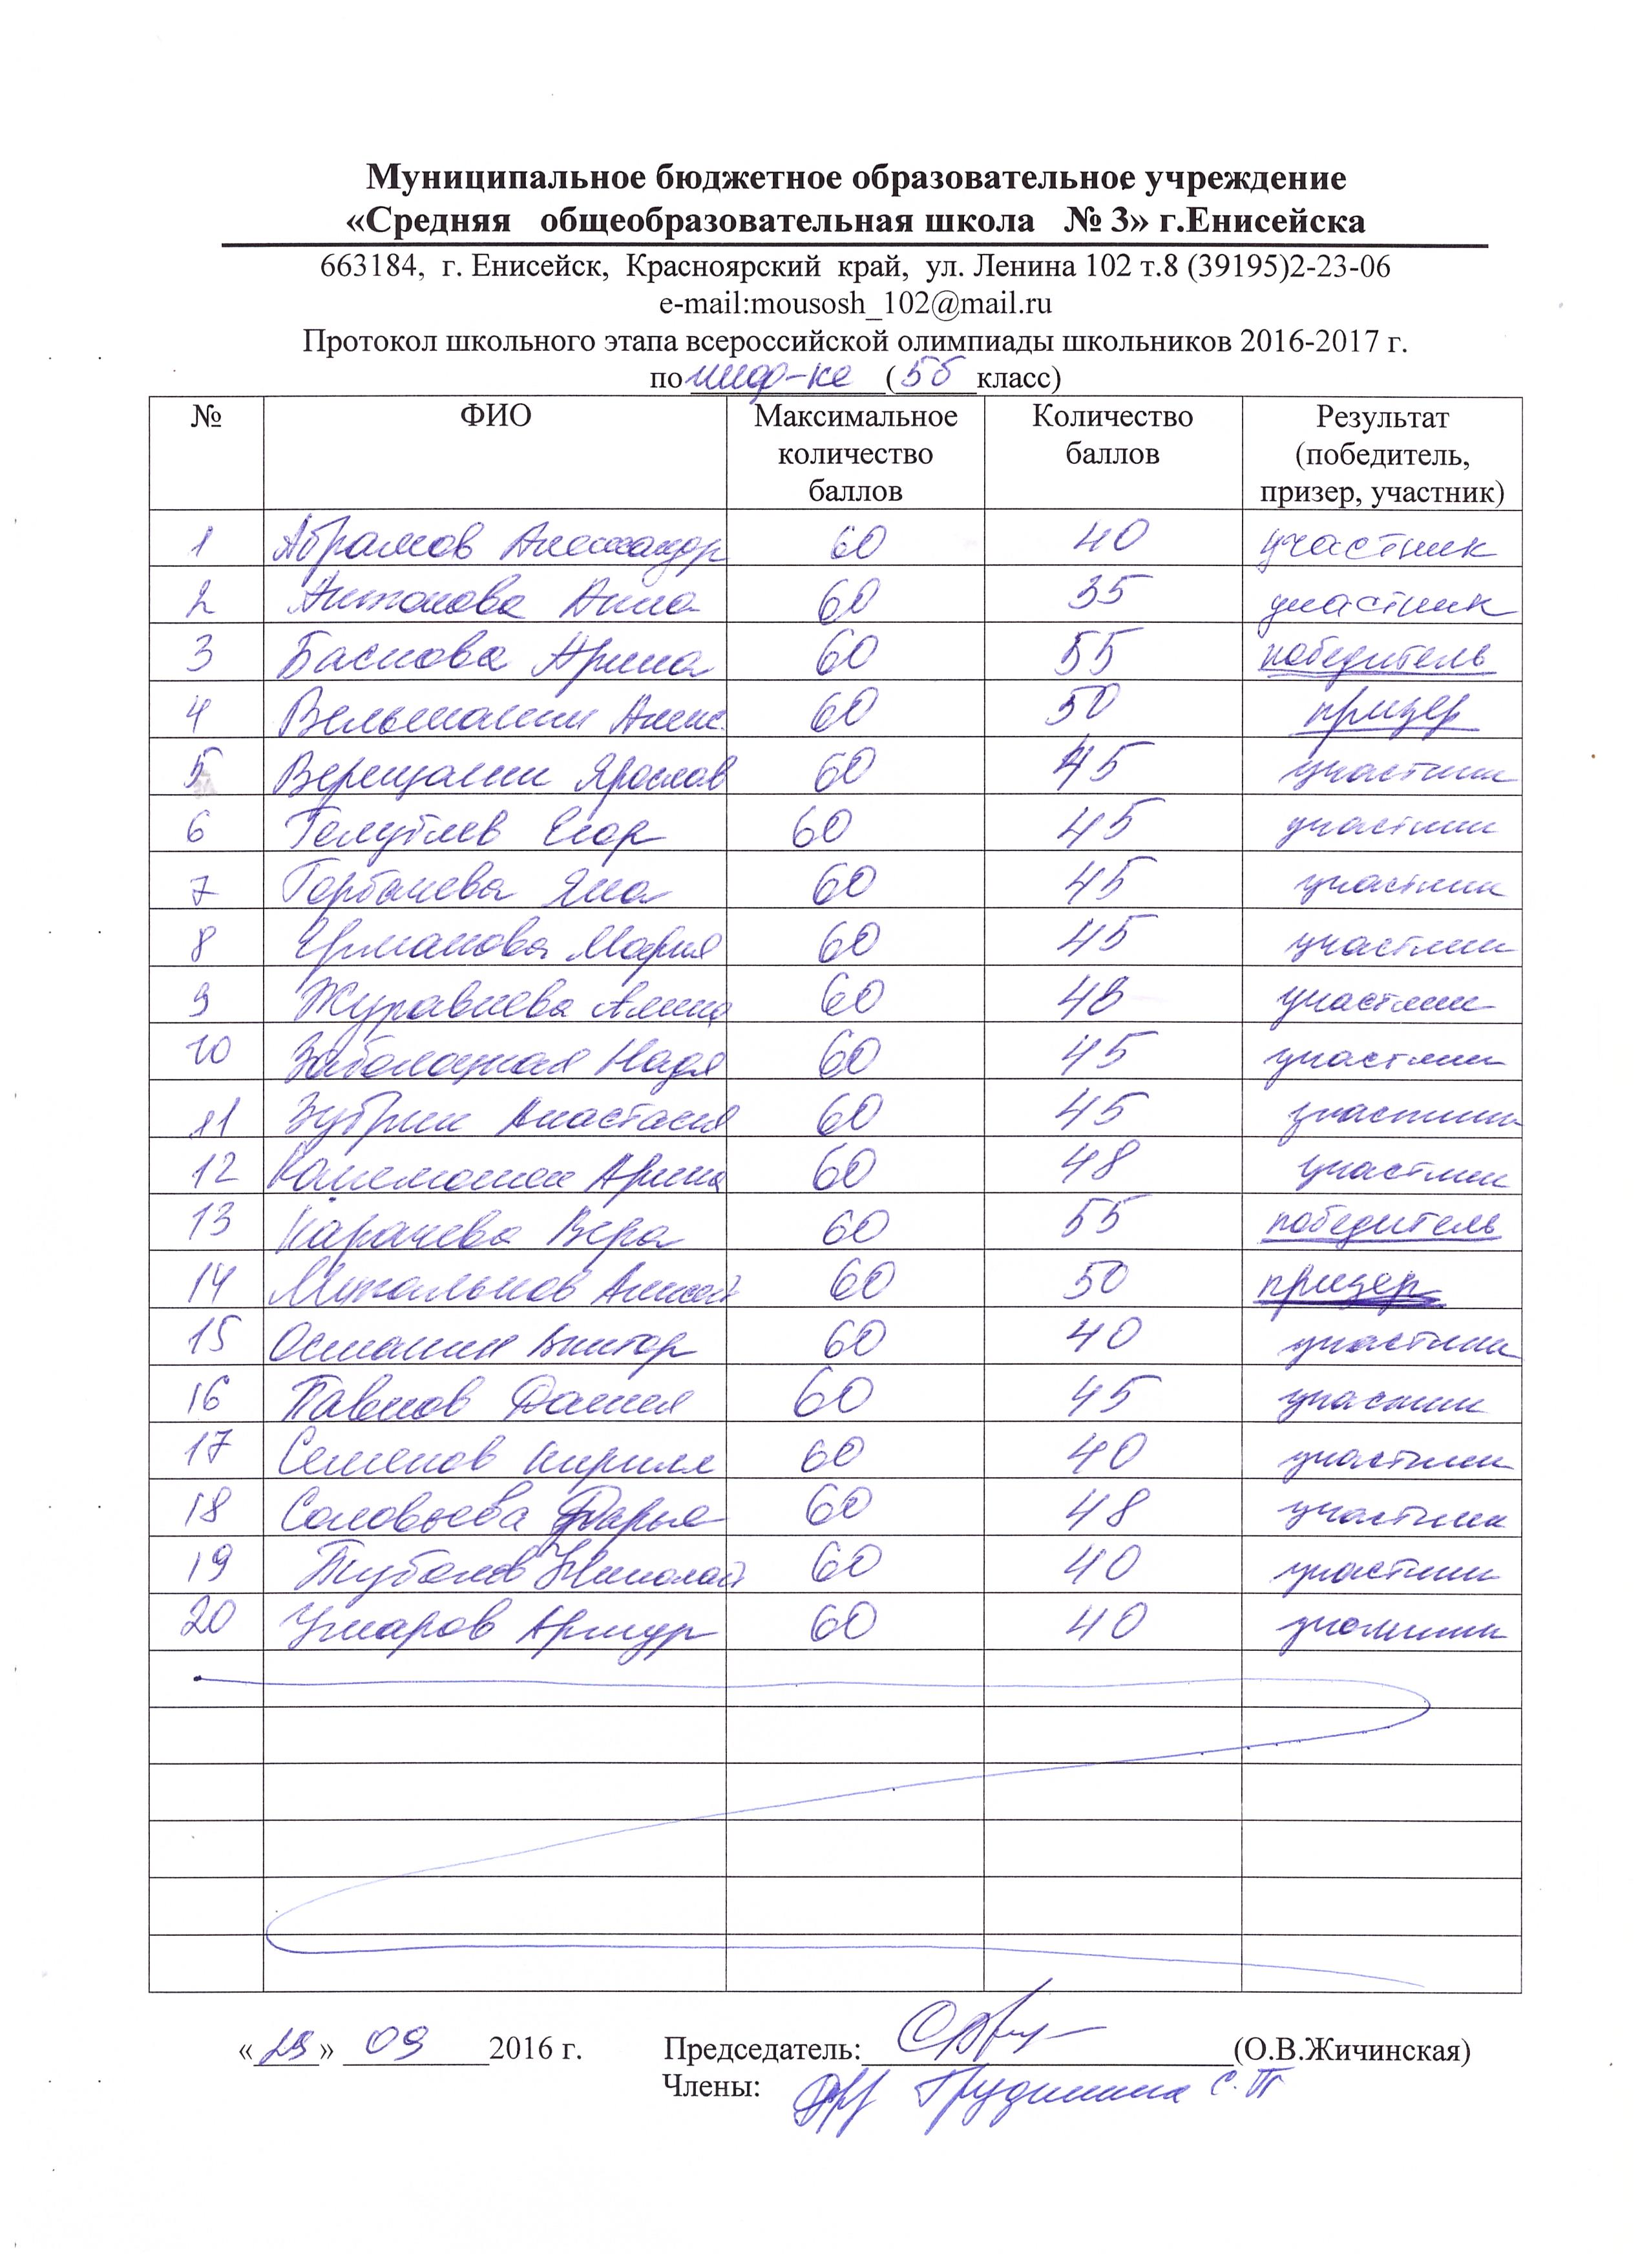 Муниципальное бюджетное образовательное учреждение
«Средняя общеобразовательная школа № 3» г.Енисейска
663184, г. Енисейск, Красноярский край, ул. Ленина 102 т.8 (39195)2-23-06
e-mail:mousosh_102@mail.ru
Протокол школьного этапа всероссийской олимпиады школьников 2016-2017 г.
по инф-ке (5б класс)
№ ФИО Максимальное количество баллов Количество баллов Результат (победитель, призер, участник)
1 Абрамов Александр 60 40 участник
2 Антонова Анна 60 35 участник
3 Баснова Арина 60 55 победитель
4 60 50 призер
5 Верещагин Ярослав 60 45 участник
6 Егор 60 45 участник
7 Горбачева Яна 60 45 участник
8 Ермакова Мария 60 45 участник
9 Журавлева Алина 60 48 участник
10 Заболоцкая Надя 60 45 участник
11 Зубрин Анастасия 60 45 участник
12 Арина 60 48 участник
13 Карачева Вера 60 55 победитель
14 Алексей 60 50 призер
15 Останин Виктор 60 40 участник
16 Павлов Данил 60 45 участник
17 Семенов Кирилл 60 40 участник
18 Соловьева Дарья 60 48 участник
19 Николай 60 40 участник
20 Умаров Артур 60 40 участник
«29» 09 2016 г. Председатель: (О.В.Жичинская)
Члены: Грудинина С.